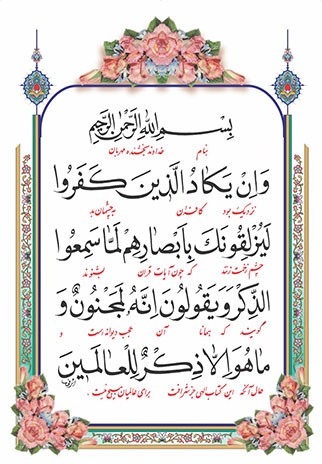 بِسْمِ اللهِ الرَّحْمٰنِ الرَّحِيمِ
بنام خداوند بخشنده مهربان
وَاِنْ يَكادُ الَّذينَ كَفَرُوا
نزدیک بود کافران به چشمان بد
لَيُزْلِقُونَكَ بِاَبْصارِهِمْ لَمّا سَمِعُوا
چشم زخمت زنند که چون آیات قرآن بشنوند
الذِّكْرَ وَيَقُولُونَ اِنَّهُ لَمَجْنُونٌ وَ
گویند که همانا آن عجب دیوانه است و
ما هُوَ اِلّا ذِكْرٌ لِلْعالَمينَ
حال آنکه این کتاب الهی جز شرافت برای عالمیان هیچ نیست